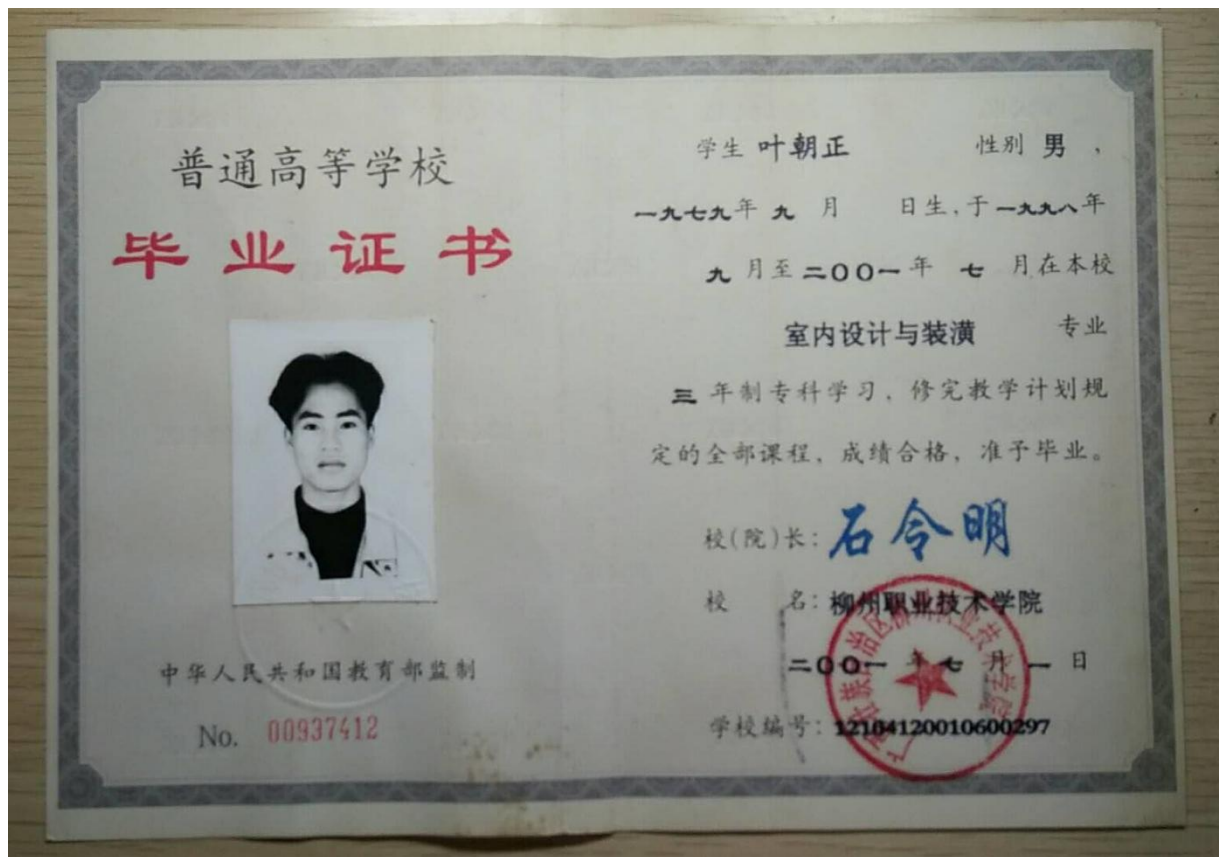 普通高等学校
毕业证书
中华人民共和国教育部监制
No. 00937412
学生 叶朝正 性别 男 ,
一九七九年 九 月 日生,于一九九八年
九 月至二〇〇一年 七 月在本校
室内设计与装潢 专业
三 年制专科学习,修完教学计划规
定的全部课程,成绩合格,准予毕业。
校(院)长:石令明
校 名:柳州职业技术学院
二〇〇一 年 七 月 一 日
学校编号:12104120010600297
广西壮族自治区柳州职业技术学院